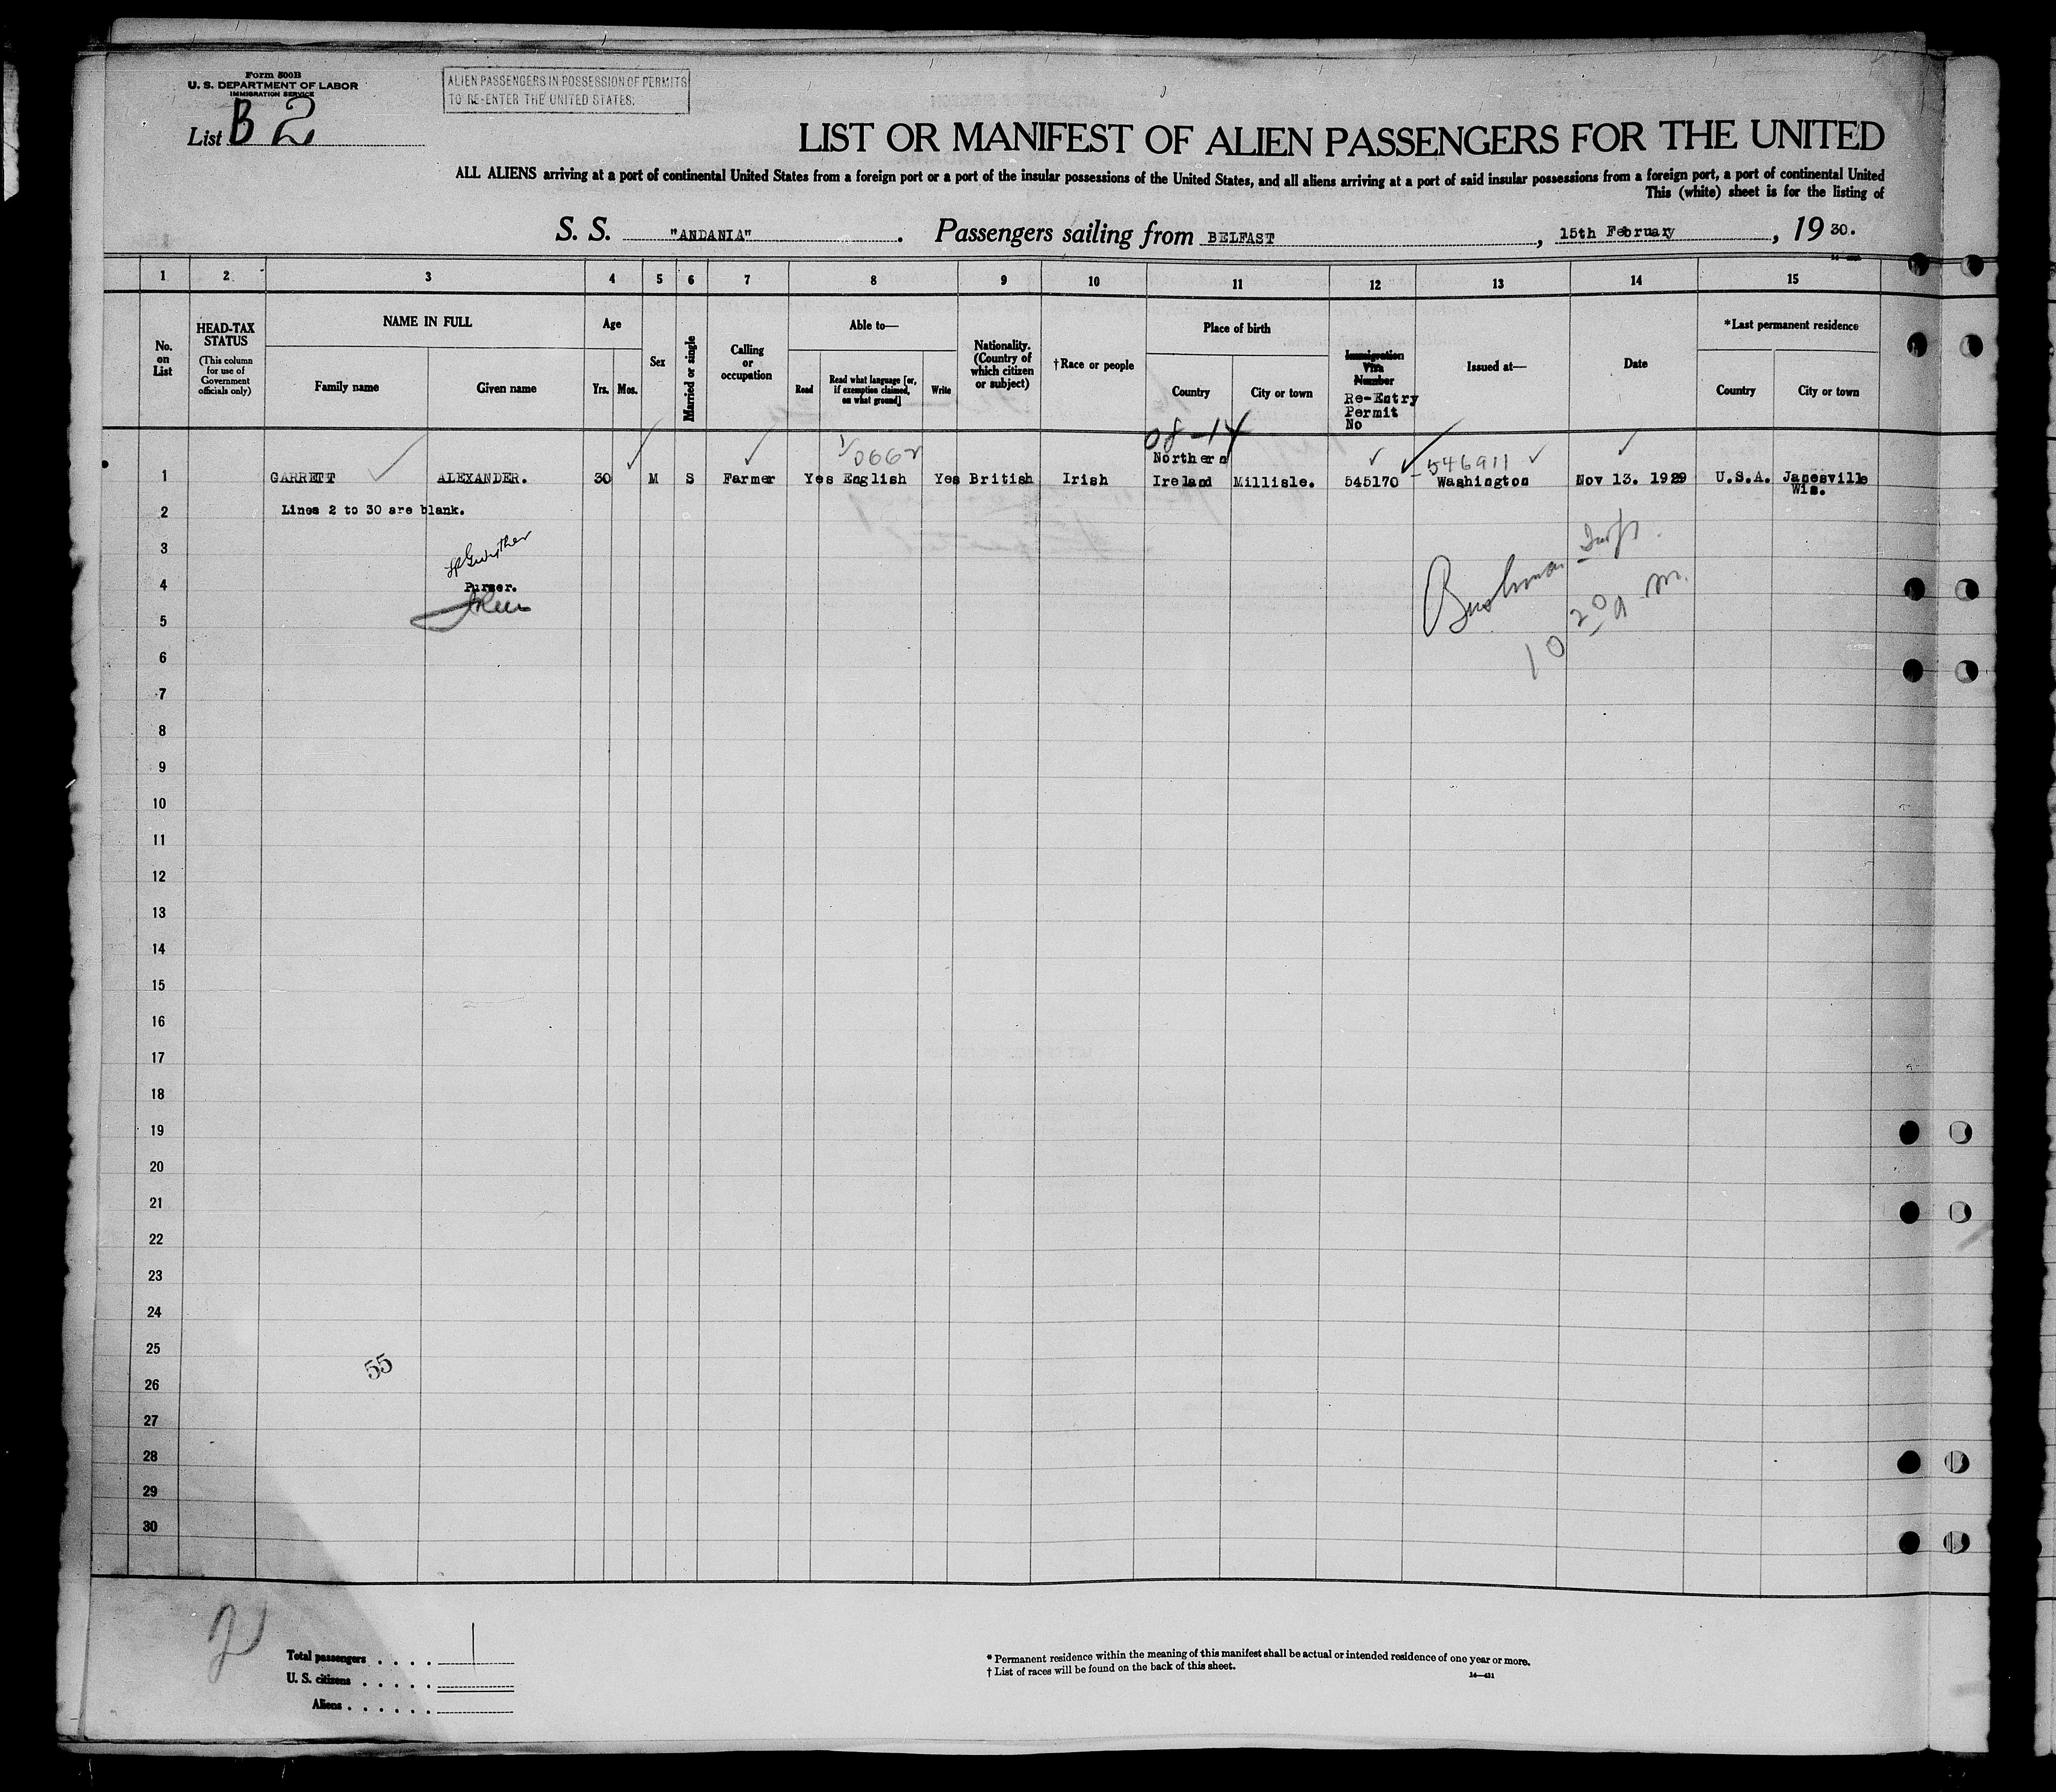 Form 500B
U. S. DEPARTMENT OF LABOR
IMMIGRATION SERVICE
List B 2
ALIEN PASSENGERS IN POSSESSION OF PERMITS
TO RE-ENTER THE UNITED STATES:
LIST OR MANIFEST OF ALIEN PASSENGERS FOR THE UNITED
ALL ALIENS arriving at a port of continental United States from a foreign port or a port of the insular possessions of the United States, and all aliens arriving at a port of said insular possessions from a foreign port, a port of continental United
This (white) sheet is for the listing of
S. S. "ANDANIA". Passengers sailing from BELFAST, 15th February, 1930.
1 2 3 4 5 6 7 8 9 10 11 12 13 14 15
No. on List
HEAD-TAX STATUS
(This column for use of Government officials only)
NAME IN FULL
Family name
Given name
Age
Yrs. Mos.
Sex
Married or single
Calling or occupation
Able to—
Read
Read what language [or, if exemption claimed, on what ground]
Write
Nationality. (Country of which citizen or subject)
†Race or people
Place of birth
Country
City or town
Immigration Visa Number
Re-Entry Permit No
Issued at—
Date
*Last permanent residence
Country
City or town
08-14
546911
1 GARRETT ALEXANDER. 30 M S Farmer Yes English Yes British Irish Northern Ireland Millisle. 545170 Washington Nov 13. 1929 U.S.A. Janesville Wis.
2 Lines 2 to 30 are blank.
3
4 Purser.
5
6
7
8
9
10
11
12
13
14
15
16
17
18
19
20
21
22
23
24
25
26
27
28
29
30
10 20 a m.
55
Total passengers . . . . 1
U. S. citizens . . . . .
Aliens . . . . . .
* Permanent residence within the meaning of this manifest shall be actual or intended residence of one year or more.
† List of races will be found on the back of this sheet.
14—431